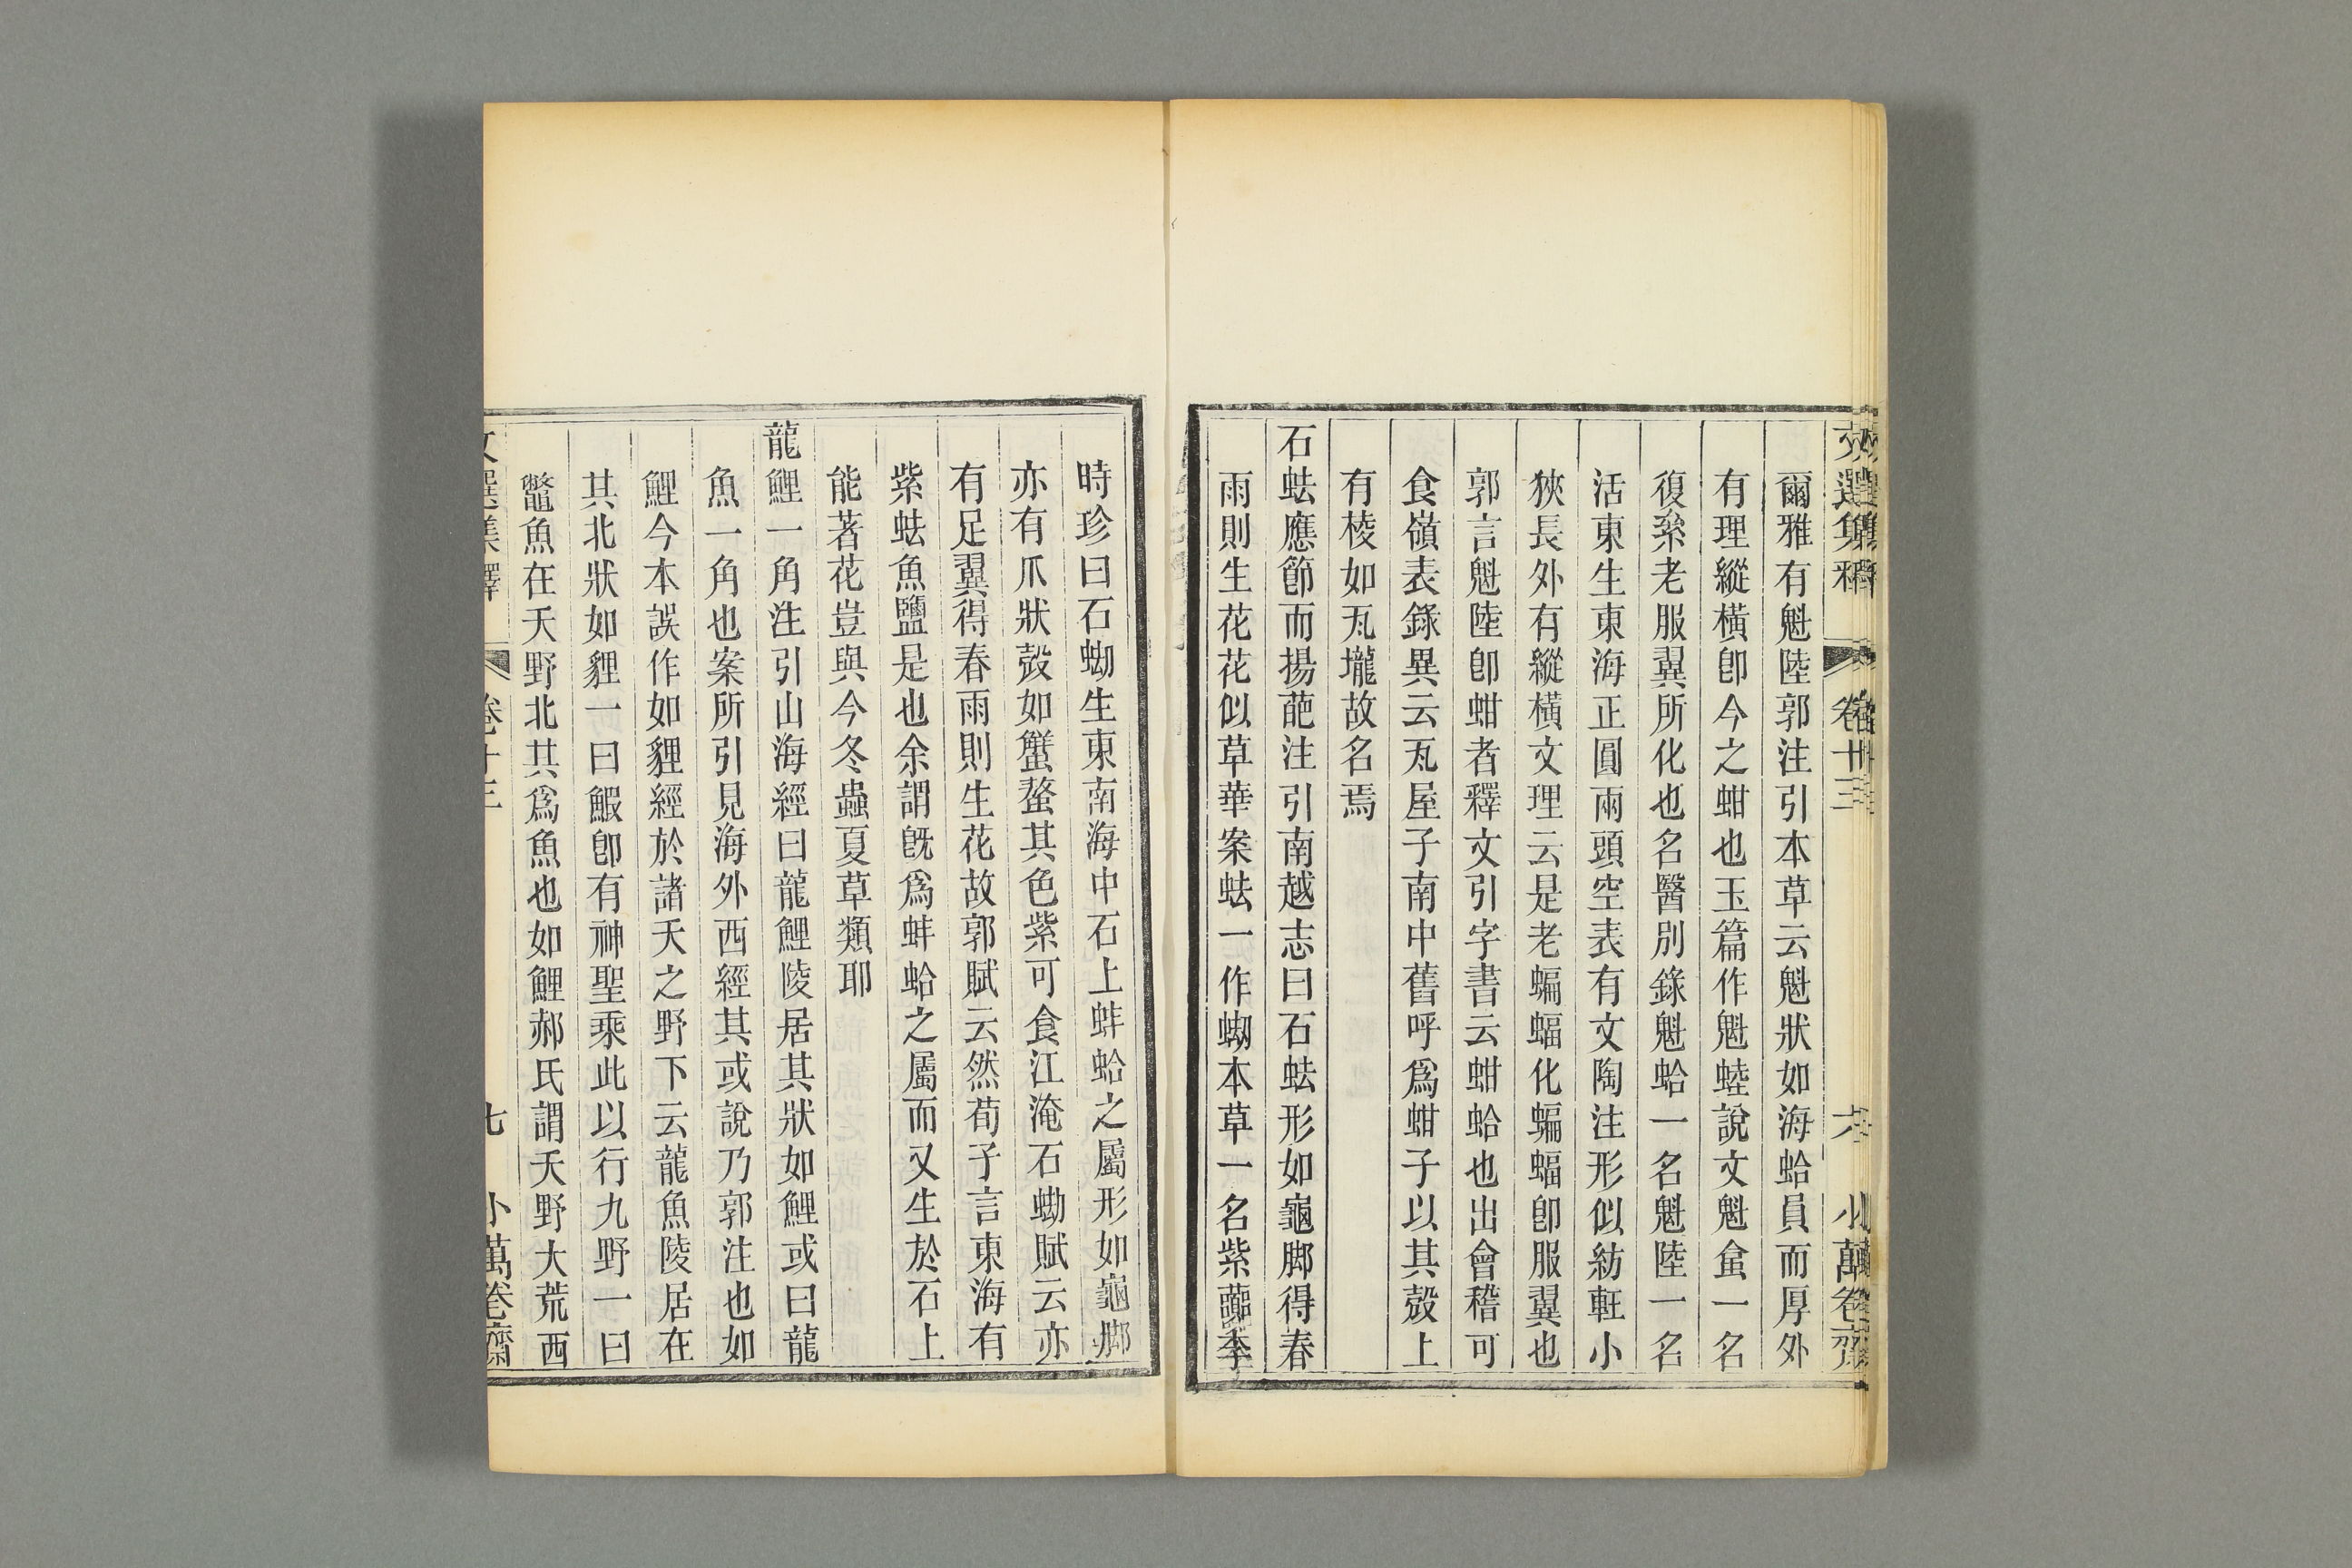 文選集釋　卷十三　六　小萬卷齋
爾雅有魁陸郭注引本草云魁狀如海蛤員而厚外
有理縱橫卽今之蚶也玉篇作魁𧐖說文魁蛤一名
復絫老服翼所化也名醫別錄魁蛤一名魁陸一名
活東生東海正圓兩頭空表有文陶注形似紡軠小
狹長外有縱橫文理云是老蝙蝠化蝙蝠卽服翼也
郭言魁陸卽蚶者釋文引字書云蚶蛤也出會稽可
食嶺表錄異云瓦屋子南中舊呼爲蚶子以其殼上
有棱如瓦壠故名焉
石蚨應節而揚葩注引南越志曰石蚨形如龜脚得春
雨則生花花似草華案蚨一作蜐本草一名紫𧉧李
時珍曰石蜐生東南海中石上蚌蛤之屬形如龜脚
亦有爪狀殼如蟹螯其色紫可食江淹石蜐賦云亦
有足翼得春雨則生花故郭賦云然荀子言東海有
紫蚨魚鹽是也余謂旣爲蚌蛤之屬而又生於石上
能著花豈與今冬蟲夏草類耶
龍鯉一角注引山海經曰龍鯉陵居其狀如鯉或曰龍
魚一角也案所引見海外西經其或說乃郭注也如
鯉今本誤作如貍經於諸夭之野下云龍魚陵居在
其北狀如貍一曰鰕卽有神聖乘此以行九野一曰
鼈魚在夭野北其爲魚也如鯉郝氏謂夭野大荒西
文選集釋　卷十三　七　小萬卷齋